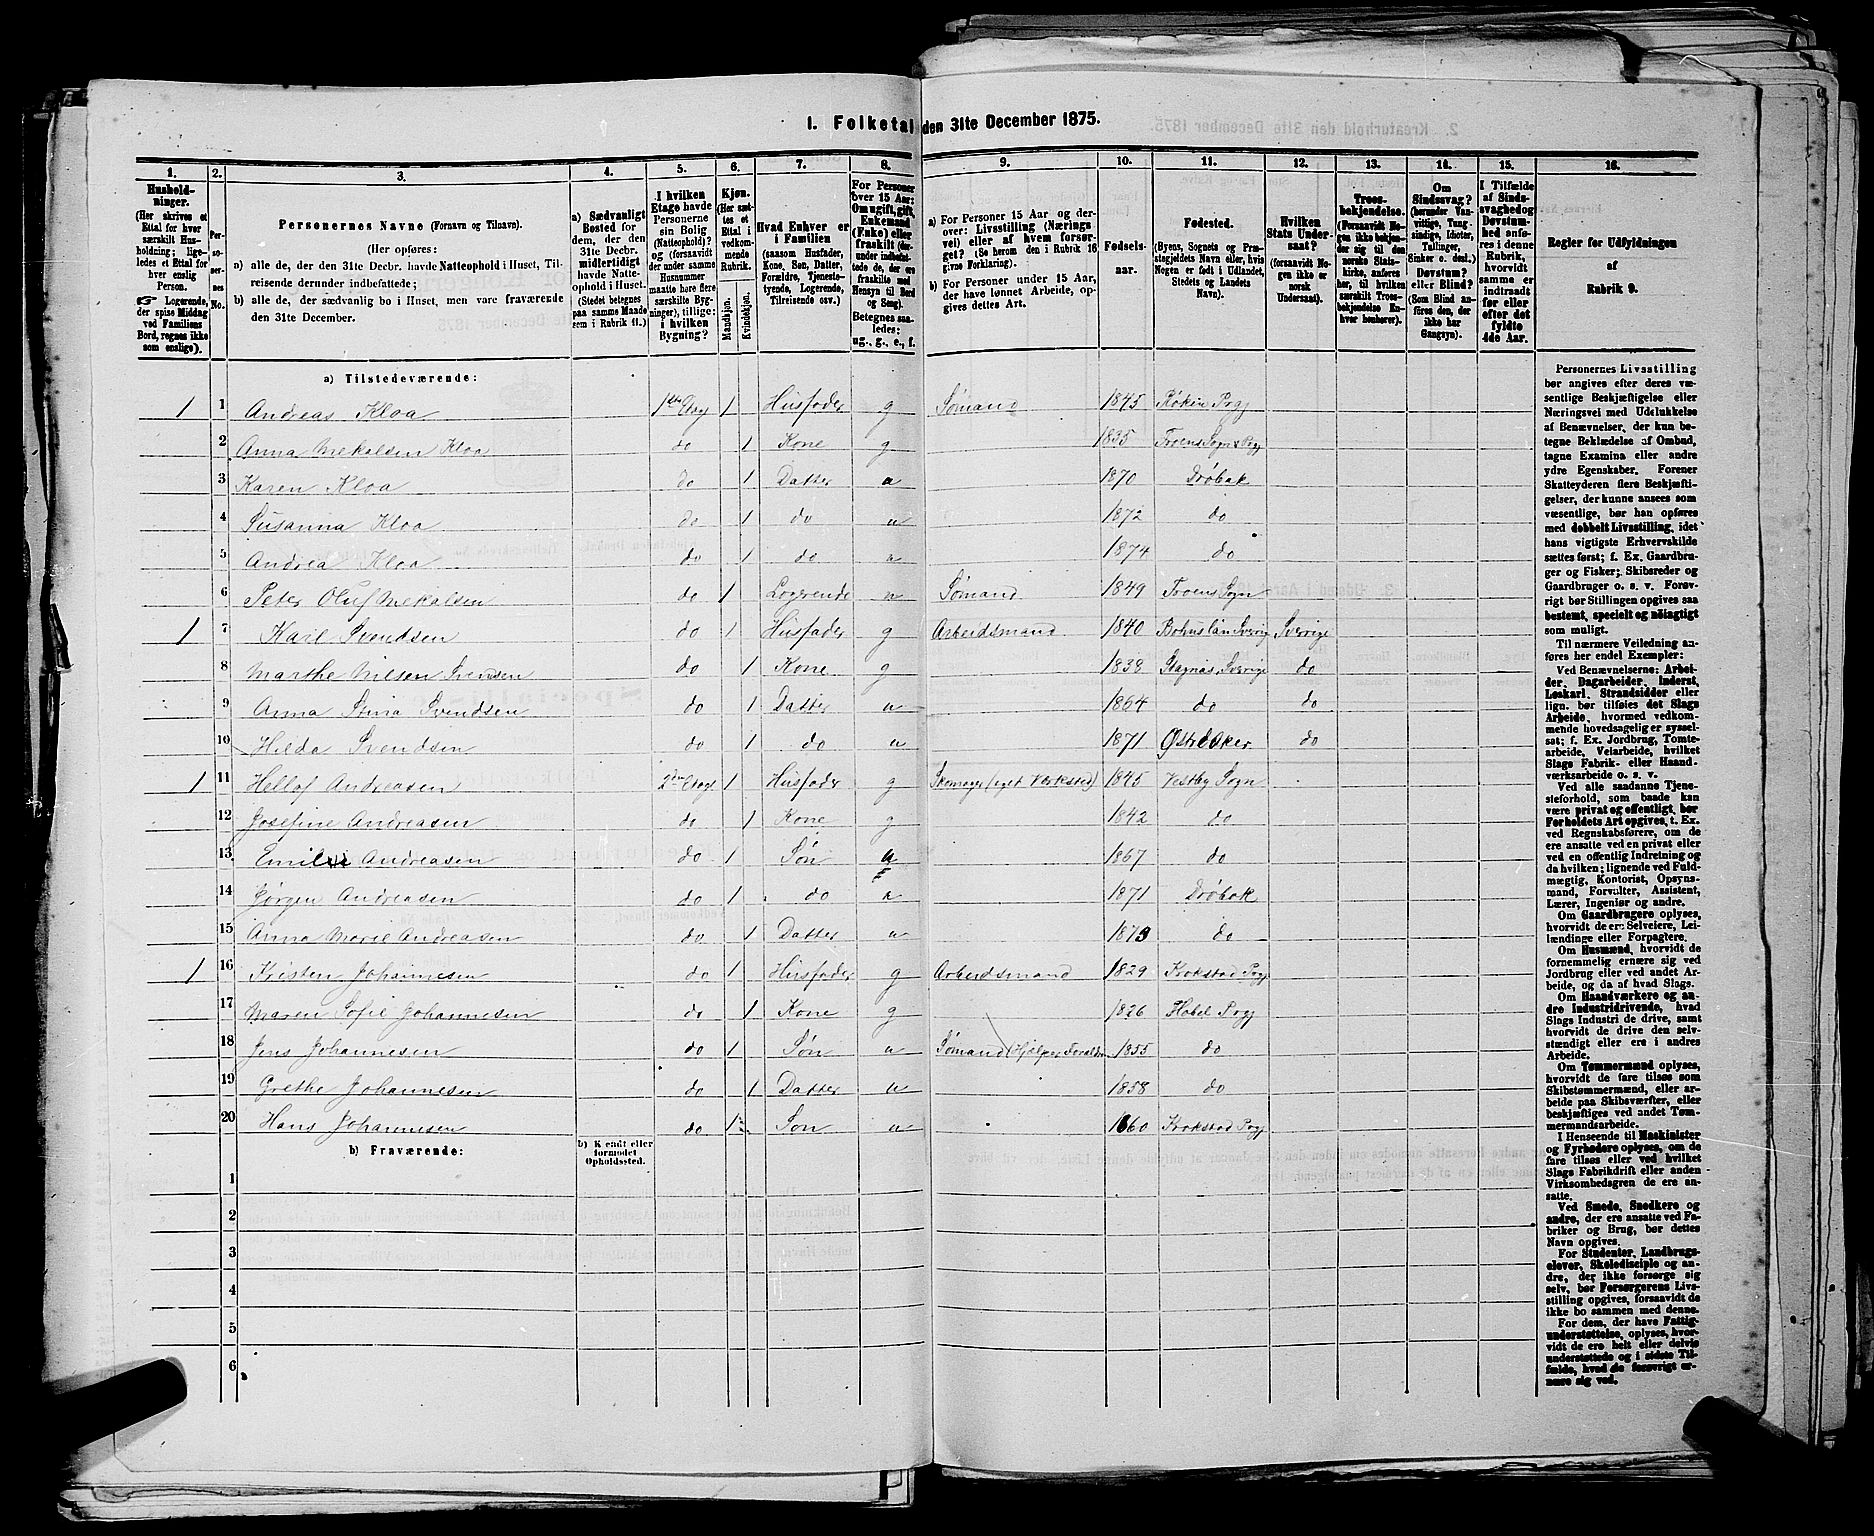 1. Folketal den 31te December 1875.
1. 2. 3. 4. 5. 6. 7. 8. 9. 10. 11. 12. 13. 14. 15. 16.
Husholdninger.
(Her skrives et
Ettal for hver
særskilt Husholdning;
ligeledes et Ettal for
hver enslig
Person.
☞ Logerende,
der spise Middag
ved Familiens
Bord, regnes ikke
som enslige).
Personernes No.
Personernes Navne (Fornavn og Tilnavn).
(Her opføres:
a) alle de, der den 31te Decbr. havde Natteophold i Huset, Tilreisende derunder indbefattede;
b) alle de, der sædvanlig bo i Huset, men vare fraværende
den 31te December.
a) Sædvanligt
Bosted for
dem, der den
31te Decbr.
midlertidigt
havde Natteophold i Huset.
(Stedet betegnes
paa samme Maade
som i Rubrik 11.)
I hvilken
Etage havde
Personerne
sin Bolig
(Natteophold)?
og (forsaavidt
der under samme
Husnummer
matte høre flere
særskilte Bygninger), tillige:
i hvilken
Bygning?
Kjøn.
(Her sættes et
Ettal i
vedkommende
Rubrik.
Mandkjøn.
Kvindekjøn.
Hvad Enhver er
i Familien
(saasom Husfader,
Kone, Søn, Datter,
Forældre, Tjenestetyende, Logerende,
Tilreisende osv.)
For Personer
over 15 Aar:
Om ugift, gift,
Enkemand
(Enke) eller
fraskilt
Betegnes saaledes:
ug., g., e., f.
a) For Personer 15 Aar og derover: Livsstilling (Næringsvei) eller af hvem forsørget? (Se herom den i Rubrik 16
givne Forklaring).
b) For Personer under 15 Aar,
der have lønnet Arbeide, opgives dettes Art.
Fødselsaar.
Fødested.
(Byens, Sognets og Præstegjeldets Navn, eller, hvis
Nogen er født i Udlandet,
Stedets og Landets
Navn).
Hvilken
Stats Undersaat?
(hvis Nogen ikke er
norsk
Undersaat).
Troesbekjendelse.
(Forsaavidt Nogen ikke bekjender sig til den
norske Statskirke, anføres
her, til hvilken
særskilt Troesbekjendelse Enhver henhører).
Om
Sindssvag?
(herunder Vanvittige, Tungsindige, Idioter,
Tullinger,
Sinker o. desl.)
Døvstum?
eller Blind?
(Som Blind anføres den, der
ikke har
Gangsyn).
I Tilfælde
af Sindssvaghed og
Døvstumhed anføres i denne
Rubrik,
hvorvidt
samme er
indtraadt
før eller
efter det
fyldte
4de Aar.
Regler for Udfyldningen
af
Rubrik 9.
a) Tilstedeværende:
1 1 Andreas Kloa 1ste Etage 1 Husfader g Sømand 1845 Røken Prgj
2 Anna Mekalsen Kloa do 1 Kone g 1835 Froens Sogn & Prgj
3 Karen Kloa do 1 Datter u 1870 Drøbak
4 Susanna Kloa do 1 do u 1872 do
5 Andrea Kloa do 1 do u 1874 do
6 Peter Oluf Mekalsen do 1 Logerende u Sømand 1849 Froens Sogn
1 7 Karl Svendsen do 1 Husfader g Arbeidsmand 1840 Bohuslän Sverig Sverige
8 Marthe Nilsen Svendsen do 1 Kone g 1838 Sverige do
9 Anna Stina Svendsen do 1 Datter u 1864 do do
10 Hilda Svendsen do 1 do u 1871 Østre Aker do
1 11 Hellof Andreasen 2den Etage 1 Husfader g Skomager (eget Værksted) 1845 Vestby Sogn
12 Josefine Andreasen do 1 Kone g 1842 do
13 Emil Andreasen do 1 Søn u 1867 do
14 Jørgen Andreasen do 1 do u 1871 Drøbak
15 Anna Marie Andreasen do 1 Datter u 1873 do
1 16 Kristen Johannesen do 1 Husfader g Arbeidsmand 1829 Krokstad Prgj
17 Maren Sofie Johannesen do 1 Kone g 1826 Hobel Prgj
18 Jens Johannesen do 1 Søn u Sømand (Hjelper Foreldre 1855 do
19 Grethe Johannesen do 1 Datter u 1858 do
20 Hans Johannesen do 1 Søn u 1860 Krokstad Prgj
b) Fraværende:
b) Kjendt eller
formodet
Opholdssted.
1
2
3
4
5
6
Personernes Livsstilling
bør angives efter deres væsentlige Beskjæftigelse eller
Næringsvei med Udelukkelse
af Benævnelser, der kun betegne Beklædelse af Ombud,
tagne Examina eller andre
ydre Egenskaber. Forener
Skatteyderen flere Beskjæftigelser, der kunne ansees som
væsentlige, bør han opføres
med dobbelt Livsstilling, idet
hans vigtigste Erhvervskilde
sættes først; f. Ex. Gaardbruger og Fisker; Skibsreder og
Gaardbruger o. s. v. Forøvrigt bør Stillingen opgives saa
bestemt, specielt og nøiagtigt
som muligt.
Til nærmere Veiledning anføres her endel Exempler:
Ved Benævnelserne: Arbeider, Dagarbeider, Inderst,
Løskarl, Strandsidder eller
lign. bør tilføies det Slags
Arbeide, hvormed vedkommende hovedsagelig er sysselsat; f. Ex. Jordbrug, Tomtearbeide, Veiarbeide, hvilket
Slags Fabrik- eller Haandværksarbeide o. s. v.
Ved alle saadanne Tjenesteforhold, som baade kan
være privat og offentligt, bør
Forholdets Art opgives, t. Ex.
ved Regnskabsførere, om de
ere ansatte ved en privat eller
ved en offentlig Indretning og
da hvilken; lignende ved Fuldmægtig, Kontorist, Opsynsmand, Forvalter, Assistent,
Lærer, Ingeniør og andre.
Om Gaardbrugere oplyses,
hvorvidt de ere Selveiere, Leilændinge eller Forpagtere.
Om Husmænd, hvorvidt de
fornemmelig ernære sig ved
Jordbrug eller ved andet Arbeide, og da af hvad Slags.
Om Haandværkere og andre Industridrivende, hvad
Slags Industri de drive, samt
hvorvidt de drive den selvstændigt eller ere i andres
Arbeide.
Om Tømmermænd oplyses,
hvorvidt de fare tilsøs som
Skibstømmermænd, eller arbeide paa Skibsværfter, eller
beskjæftiges ved andet Tømmermandsarbeide.
I Henseende til Maskinister
og Fyrbødere oplyses, om de
fare tilsøs eller ved hvilket
Slags Fabrikdrift eller anden
Virksomhedsgren de ere ansatte.
Ved Smede, Snedkere og
andre, der ere ansatte ved Fabriker og Brug, bør dettes
Navn opgives.
For Studenter, Landbrugselever, Skoledisciple og andre, der ikke forsørge sig
selv, bør Forsørgerens Livsstilling opgives, forsaavidt de
ikke bo sammen med denne.
For dem, der have Fattigunderstøttelse, oplyses, hvorvidt de ere helt eller delvis
understøttede og i sidste Tilfælde, hvad de forøvrigt ernære sig ved.